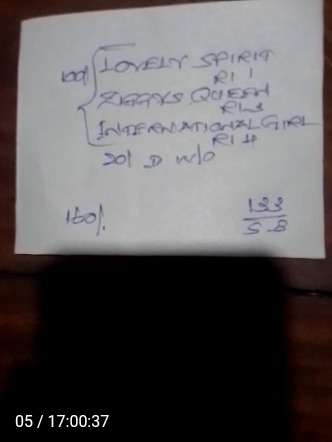 LOVELY SPIRIT
R1 1
ZIGGYS QUEEN
INTERNATIONAL GIRL
R1 4
20/ D W/O
160/.
133
5-8
05 / 17:00:37